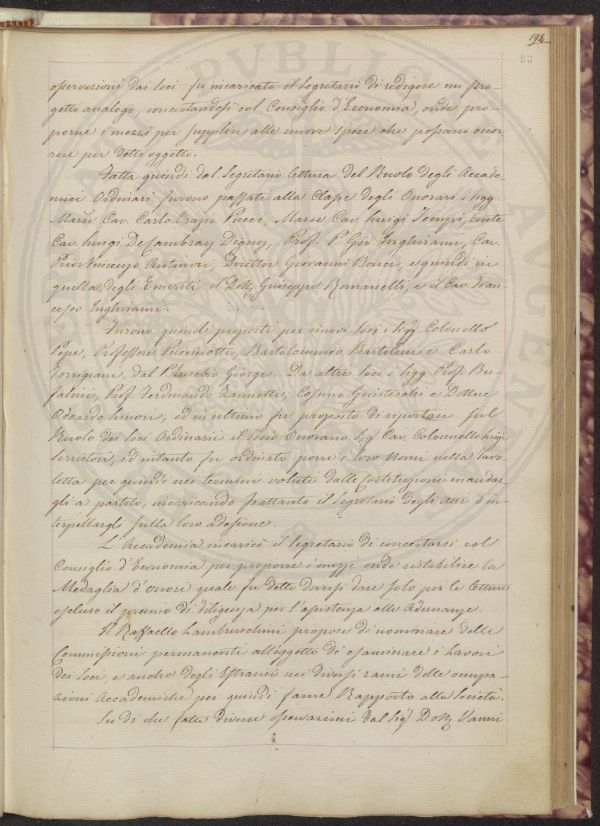 194
93
osservazioni dai Soci fu incaricato il Segretario di redigere un pro-
getto analogo, concertandosi col Consiglio d'Economia, onde pro-
porne i mezzi per supplire alle nuove spese che possano occor-
rere per detto oggetto.
Fatta quindi dal Segretario lettura del Ruolo degli Accade-
mici Ordinari furono passati alla Classe degli Onorari i Sigg.
March. Cav. Carlo Orazio Pucci, Marse Cav. Luigi Tempi, Conte
Cav. Luigi DeCambray Digny, Prof. P. Gio Inghirami, Cav.
Prior Vincenzo Antinori, Direttor Giovanni Bonci, e quindi in
quella degli Emeriti il Dott. Giuseppe Romanelli, e il Cav. Fran-
cesco Inghirami.
Furono quindi proposti per nuovi Soci i Sigg. Colonnello
Pepe, Professore Puccinotti, Bartolommeo Bartolini e Carlo
Torrigiani, dal P. Eusebio Giorgi. Da altri Soci i Sigg. Prof. Bu-
falini, Prof. Ferdinando Zannetti, Cosimo Ginistrelli e Dottore
Odoardo Linori, ed in ultimo fu proposto di riportare sul
Ruolo dei Soci Ordinarii il Socio Onorario Sig. Cav. Colonnello Luigi
Serristori, ed intanto fu ordinato porre i loro Nomi nella Tavo-
letta per quindi nei termini voluti dalle Costituzioni mandar-
gli a partito, incaricando frattanto il Segretario degli Atti d'in-
terpellargli sulla loro adesione.
L'Accademia incaricò il Segretario di concertarsi col
Consiglio d'Economia per proporre i mezzi onde ristabilire la
Medaglia d'onore quale fu detto doversi dare solo per le letture
escluso il premio di diligenza per l'assistenza alle Adunanze.
Il Raffaello Lambruschini propose di nominare delle
Commissioni permanenti all'oggetto di esaminare i lavori
dei Soci, e anche degli Estranei nei diversi rami delle occupa-
zioni Accademiche per quindi farne Rapporto alla Società.
Su di che fatte diverse osservazioni dal Sig. Dott. Vanni